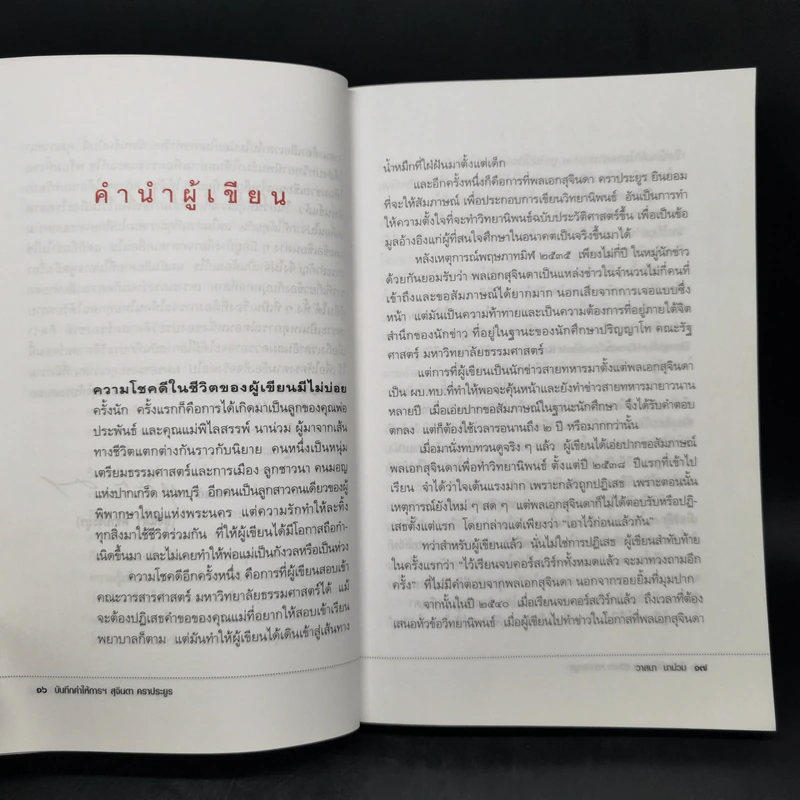 คำนำผู้เขียน
ความโชคดีในชีวิตของผู้เขียนมีไม่บ่อย
ครั้งนัก ครั้งแรกก็คือการได้เกิดมาเป็นลูกของคุณพ่อ
ประพันธ์ และคุณแม่พิไลสรรพ์ นาน่วม ผู้มาจากเส้น
ทางชีวิตแตกต่างกันราวกับนิยาย คนหนึ่งเป็นหนุ่ม
เตรียมธรรมศาสตร์และการเมือง ลูกชาวนา คนมอญ
แห่งปากเกร็ด นนทบุรี อีกคนเป็นลูกสาวคนเดียวของผู้
พิพากษาใหญ่แห่งพระนคร แต่ความรักทำให้ละทิ้ง
ทุกสิ่งมาใช้ชีวิตร่วมกัน ที่ให้ผู้เขียนได้มีโอกาสถือกำ-
เนิดขึ้นมา และไม่เคยทำให้พ่อแม่เป็นกังวลหรือเป็นห่วง
ความโชคดีอีกครั้งหนึ่ง คือการที่ผู้เขียนสอบเข้า
คณะวารสารศาสตร์ มหาวิทยาลัยธรรมศาสตร์ได้ แม้
จะต้องปฏิเสธคำขอของคุณแม่ที่อยากให้สอบเข้าเรียน
พยาบาลก็ตาม แต่มันทำให้ผู้เขียนได้เดินเข้าสู่เส้นทาง
๑๖ บันทึกคำให้การฯ สุจินดา คราประยูร
น้ำหมึกที่ใฝ่ฝันมาตั้งแต่เด็ก
และอีกครั้งหนึ่งก็คือการที่พลเอกสุจินดา คราประยูร ยินยอม
ที่จะให้สัมภาษณ์ เพื่อประกอบการเขียนวิทยานิพนธ์ อันเป็นการทำ
ให้ความตั้งใจที่จะทำวิทยานิพนธ์ฉบับประวัติศาสตร์ขึ้น เพื่อเป็นข้อ
มูลอ้างอิงแก่ผู้ที่สนใจศึกษาในอนาคตเป็นจริงขึ้นมาได้
หลังเหตุการณ์พฤษภาทมิฬ ๒๕๓๕ เพียงไม่กี่ปี ในหมู่นักข่าว
ด้วยกันยอมรับว่า พลเอกสุจินดาเป็นแหล่งข่าวในจำนวนไม่กี่คนที่
เข้าถึงและขอสัมภาษณ์ได้ยากมาก นอกเสียจากการเจอแบบซึ่ง
หน้า แต่มันเป็นความท้าทายและเป็นความต้องการที่อยู่ภายใต้จิต
สำนึกของนักข่าว ที่อยู่ในฐานะของนักศึกษาปริญญาโท คณะรัฐ
ศาสตร์ มหาวิทยาลัยธรรมศาสตร์
แต่การที่ผู้เขียนเป็นนักข่าวสายทหารมาตั้งแต่พลเอกสุจินดา
เป็น ผบ.ทบ.ที่ทำให้พอจะคุ้นหน้าและยังทำข่าวสายทหารมายาวนาน
หลายปี เมื่อเอ่ยปากขอสัมภาษณ์ในฐานะนักศึกษา จึงได้รับคำตอบ
ตกลง แต่ก็ต้องใช้เวลารอนานถึง ๒ ปี หรือมากกว่านั้น
เมื่อมานั่งทบทวนดูจริง ๆ แล้ว ผู้เขียนได้เอ่ยปากขอสัมภาษณ์
พลเอกสุจินดาเพื่อทำวิทยานิพนธ์ ตั้งแต่ปี ๒๕๓๘ ปีแรกที่เข้าไป
เรียน จำได้ว่าใจเต้นแรงมาก เพราะกลัวถูกปฏิเสธ เพราะตอนนั้น
เหตุการณ์ยังใหม่ ๆ สด ๆ แต่พลเอกสุจินดาก็ไม่ได้ตอบรับหรือปฏิ-
เสธตั้งแต่แรก โดยกล่าวแต่เพียงว่า “เอาไว้ก่อนแล้วกัน”
ทว่าสำหรับผู้เขียนแล้ว นั่นไม่ใช่การปฏิเสธ ผู้เขียนสำทับท้าย
ในครั้งแรกว่า “ไว้เรียนจบคอร์สเวิร์กทั้งหมดแล้ว จะมาทวงถามอีก
ครั้ง” ที่ไม่มีคำตอบจากพลเอกสุจินดา นอกจากรอยยิ้มที่มุมปาก
จากนั้นในปี ๒๕๔๐ เมื่อเรียนจบคอร์สเวิร์กแล้ว ถึงเวลาที่ต้อง
เสนอหัวข้อวิทยานิพนธ์ เมื่อผู้เขียนไปทำข่าวในโอกาสที่พลเอกสุจินดา
วาสนา นาน่วม ๑๗